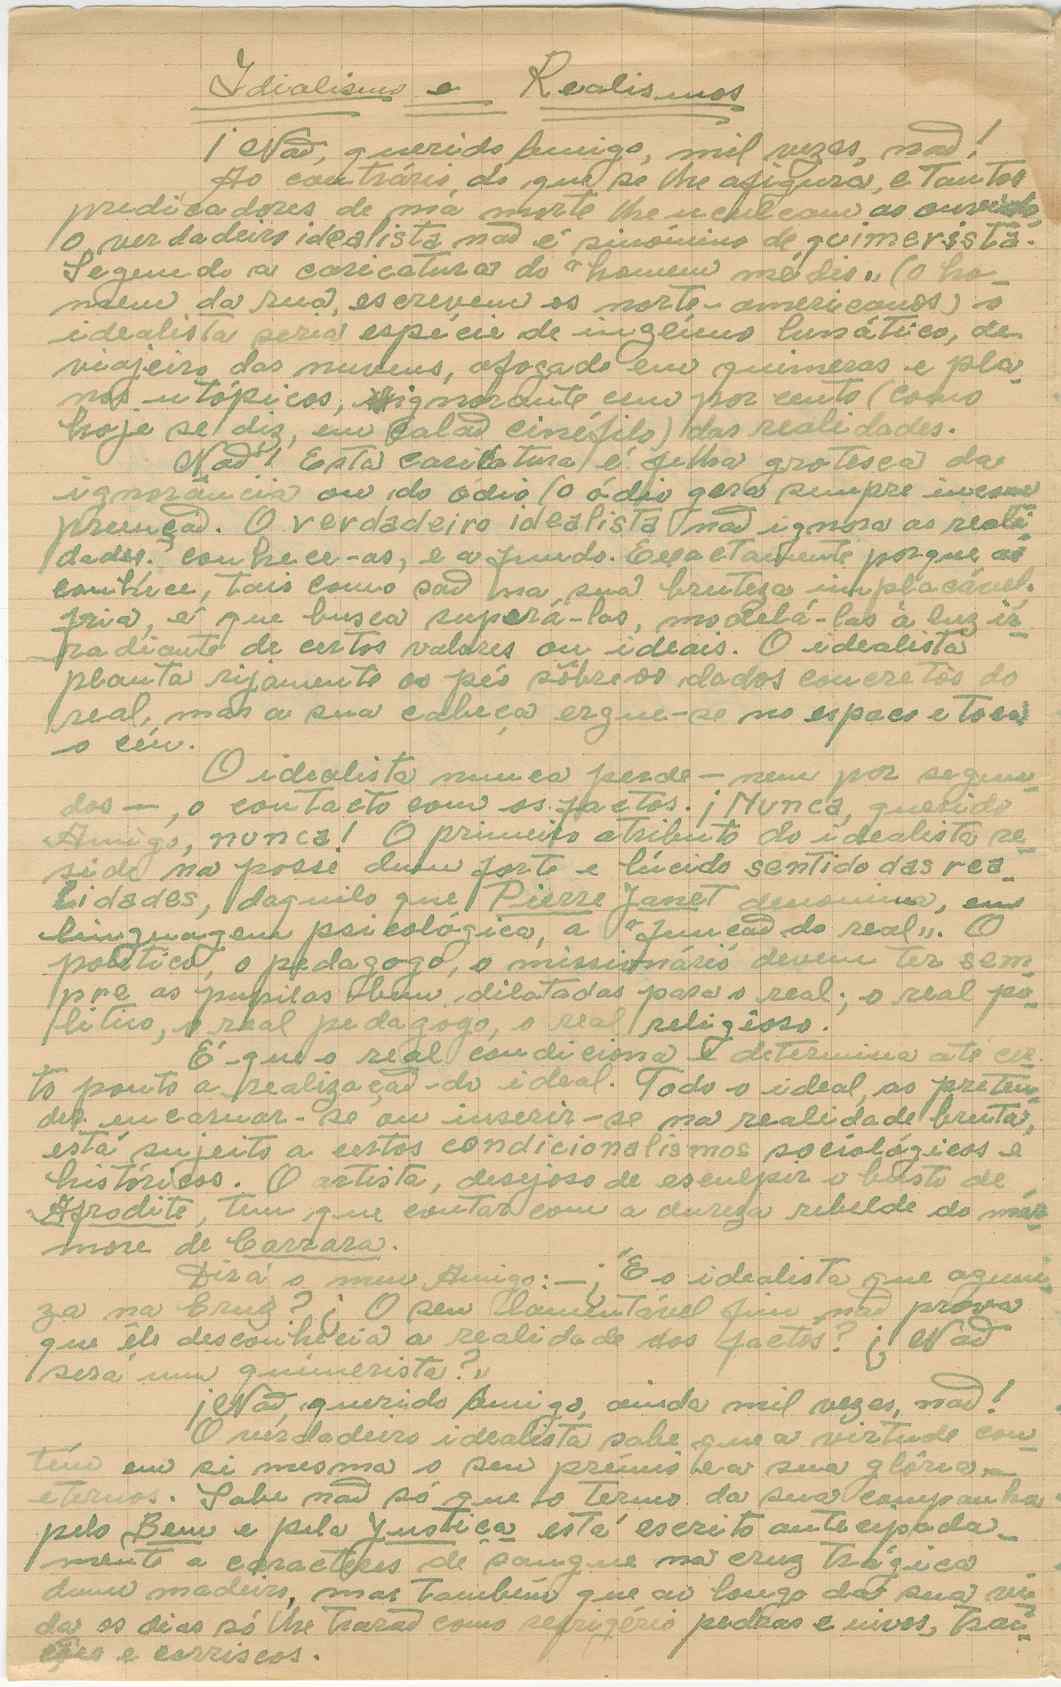 Idialismo e Realismos
¡ Não, querido Amigo, mil vezes, não!
Ao contrário do que se lhe afigura, e tantos
predicadores de má morte lhe inculcam ao ouvido,
o verdadeiro idealista não é sinónimo de quimerista.
Segundo a caricatura do "homem médio" (o ho-
mem da rua, escrevem os norte-americanos) o
idealista seria espécie de ingénuo lunático, de
viajeiro das nuvens, afogado em quimeras e pla-
nos utópicos, ignorante cem por cento (como
hoje se diz, em calão cinéfilo) das realidades.
Não! Esta caricatura é filha grotesca da
ignorância ou do ódio (o ódio gera sempre incom-
preensão. O verdadeiro idealista não ignora as reali-
dades: conhece-as, e a fundo. Exactamente porque as
conhece, tais como são na sua bruteza implacável,
fria, é que busca superá-las, modelá-las à luz ir-
radiante de certos valores ou ideais. O idealista
planta rijamente os pés sôbre os dados concretos do
real, mas a sua cabeça ergue-se no espaço e toca
o céu.
O idealista nunca perde — nem por segun-
dos —, o contacto com os factos. ¡ Nunca, querido
Amigo, nunca! O primeiro atributo do idealista re-
side na posse dum forte e lúcido sentido das rea-
lidades, daquilo que Pierre Janet denomina, em
linguagem psicológica, a "função do real". O
político, o pedagogo, o missionário devem ter sem-
pre as pupilas bem dilatadas para o real; o real po-
lítico, o real pedagogo, o real religioso.
É que o real condiciona e determina até cer-
to ponto a realização do ideal. Todo o ideal, ao preten-
der encarnar-se ou inserir-se na realidade bruta,
está sujeito a certos condicionalismos sociológicos e
históricos. O artista, desejoso de esculpir o busto de
Afrodite, tem que contar com a dureza rebelde do már-
more de Carrara.
Dirá o meu Amigo: — ¿ "E o idealista que agoni-
za na Cruz? ¿ O seu lamentável fim não prova
que êle desconhecia a realidade dos factos? ¿ Não
será um quimerista?"
¡ Não, querido Amigo, ainda mil vezes, não!
O verdadeiro idealista sabe que a virtude con-
tém em si mesma o seu prémio e a sua glória
eternos. Sabe não só que o termo da sua campanha
pelo Bem e pela Justiça está escrito antecipada-
mente a caracteres de sangue na cruz trágica
dum madeiro, mas também que ao longo da sua vi-
da os dias só lhe trarão como refrigério pedras e uivos, trai-
ções e corriscos.